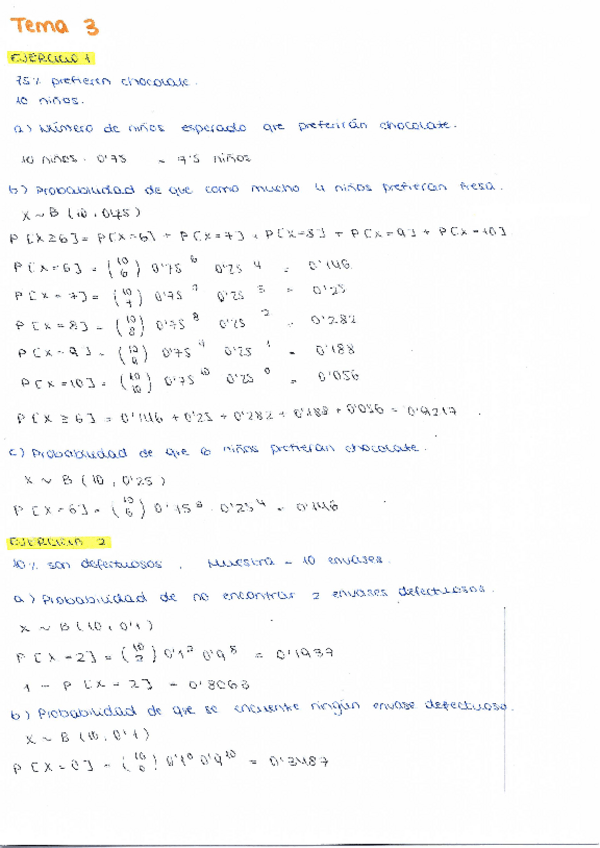 Tema 3
EJERCICIO 1
75% prefieren chocolate.
10 niños.
a) Número de niños esperado que preferirán chocolate.
10 niños · 0'75 = 7'5 niños
b) Probabilidad de que como mucho 4 niños prefieran fresa.
X ~ B (10, 0'75)
P[X≥6] = P[X=6] + P[X=7] + P[X=8] + P[X=9] + P[X=10]
P[X=6] = (10 6) 0'75^6 0'25^4 = 0'146
P[X=7] = (10 7) 0'75^7 0'25^3 = 0'25
P[X=8] = (10 8) 0'75^8 0'25^2 = 0'282
P[X=9] = (10 9) 0'75^9 0'25^1 = 0'188
P[X=10] = (10 10) 0'75^10 0'25^0 = 0'056
P[X≥6] = 0'146 + 0'25 + 0'282 + 0'188 + 0'056 = 0'9217
c) Probabilidad de que 6 niños prefieran chocolate.
X ~ B (10, 0'25)
P[X=6] = (10 6) 0'75^6 · 0'25^4 = 0'146
EJERCICIO 2
10% son defectuosos, Muestra = 10 envases.
a) Probabilidad de no encontrar 2 envases defectuosos.
X ~ B (10, 0'1)
P[X=2] = (10 2) 0'1^2 0'9^8 = 0'1937
1 - P[X=2] = 0'8063
b) Probabilidad de que se encuentre ningún envase defectuoso.
X ~ B (10, 0'1)
P[X=0] = (10 0) 0'1^0 0'9^10 = 0'3487